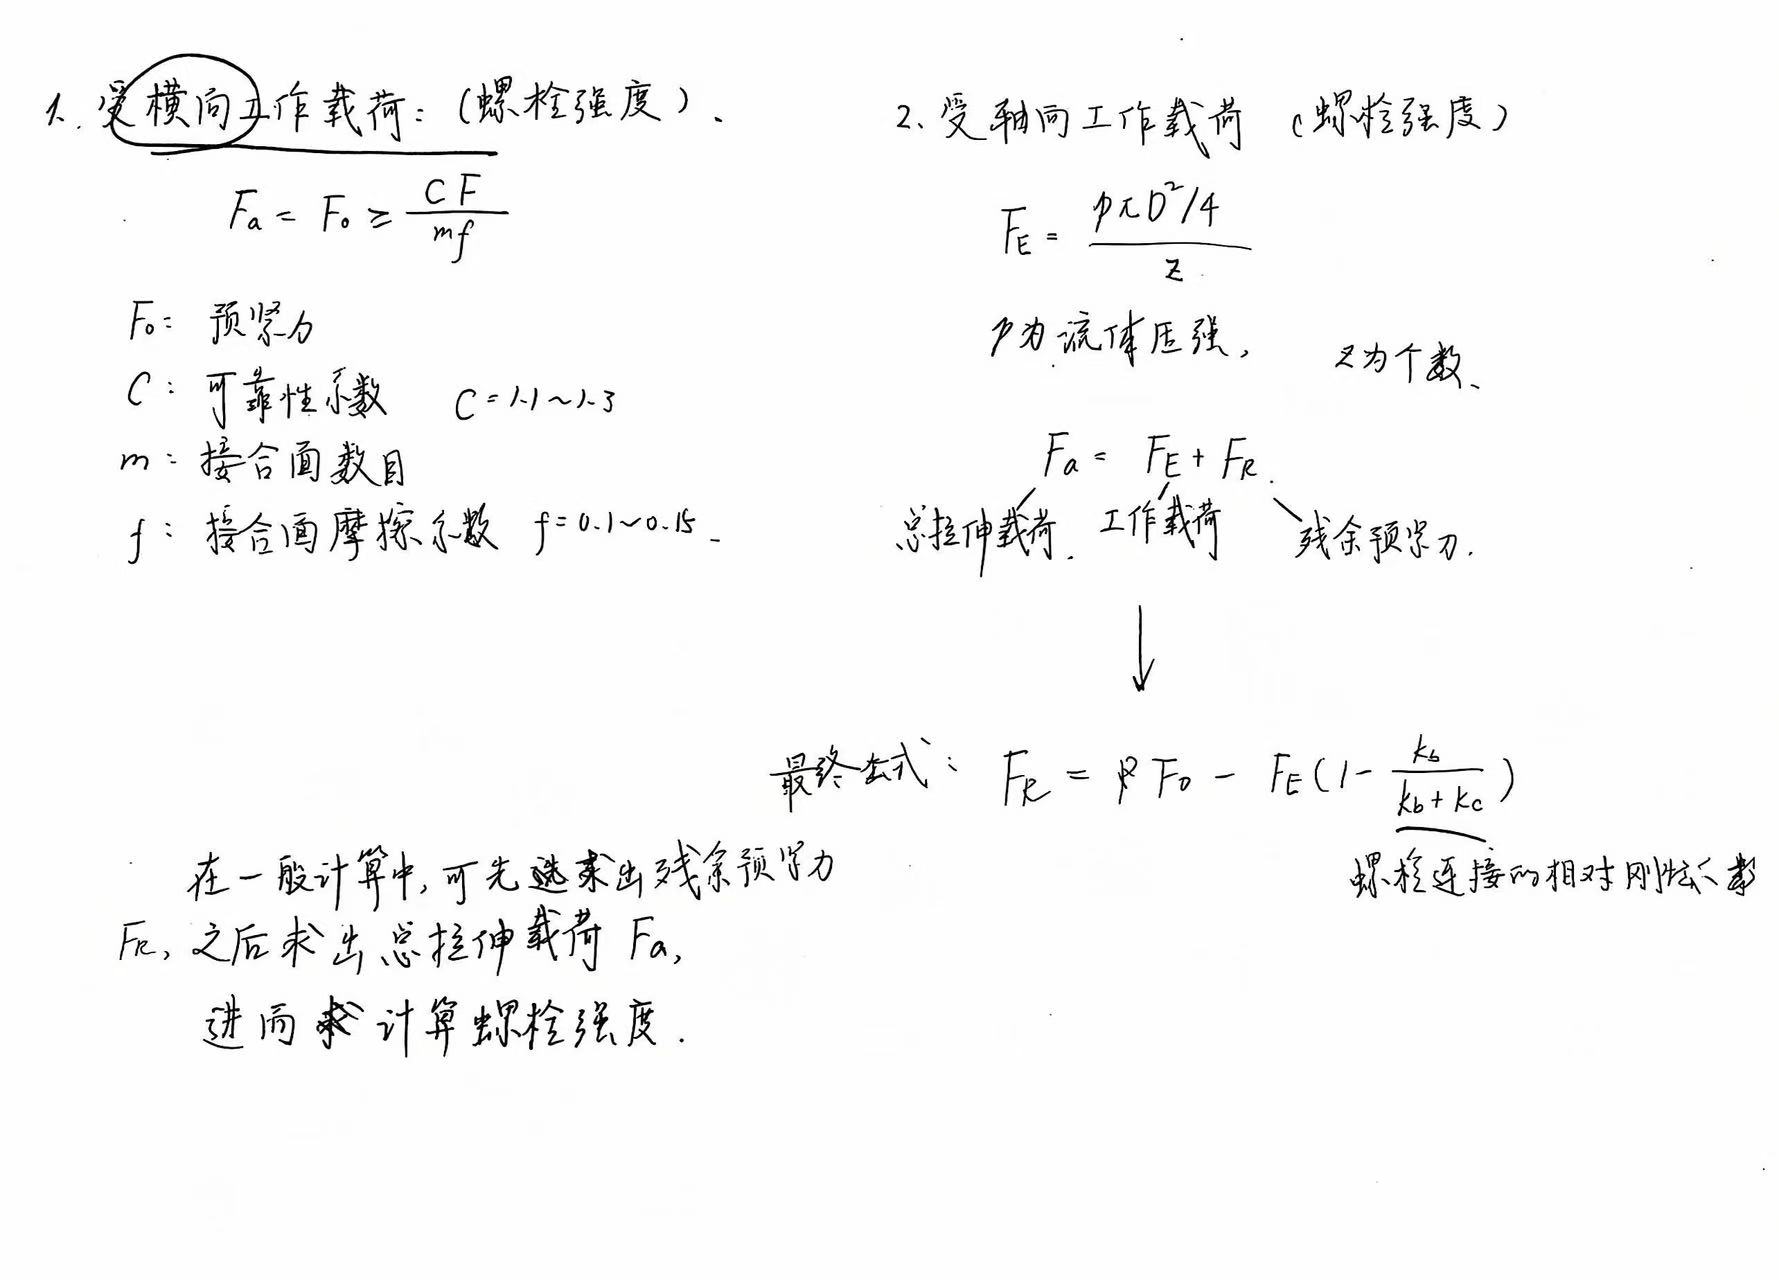 1. 受横向工作载荷:(螺栓强度).
Fa = F0 ≥ CF/mf
F0: 预紧力
C: 可靠性系数 C=1.1~1.3
m: 接合面数目
f: 接合面摩擦系数 f=0.1~0.15.
2. 受轴向工作载荷 (螺栓强度)
FE = pπD²/4 / z
p为流体压强, z为个数、
Fa = FE + FR.
总拉伸载荷. 工作载荷 残余预紧力.
最终公式: FR = F0 - FE(1- kb/(kb+kc))
螺栓连接的相对刚性系数
在一般计算中,可先求出残余预紧力
FR,之后求出总拉伸载荷 Fa,
进而计算螺栓强度.